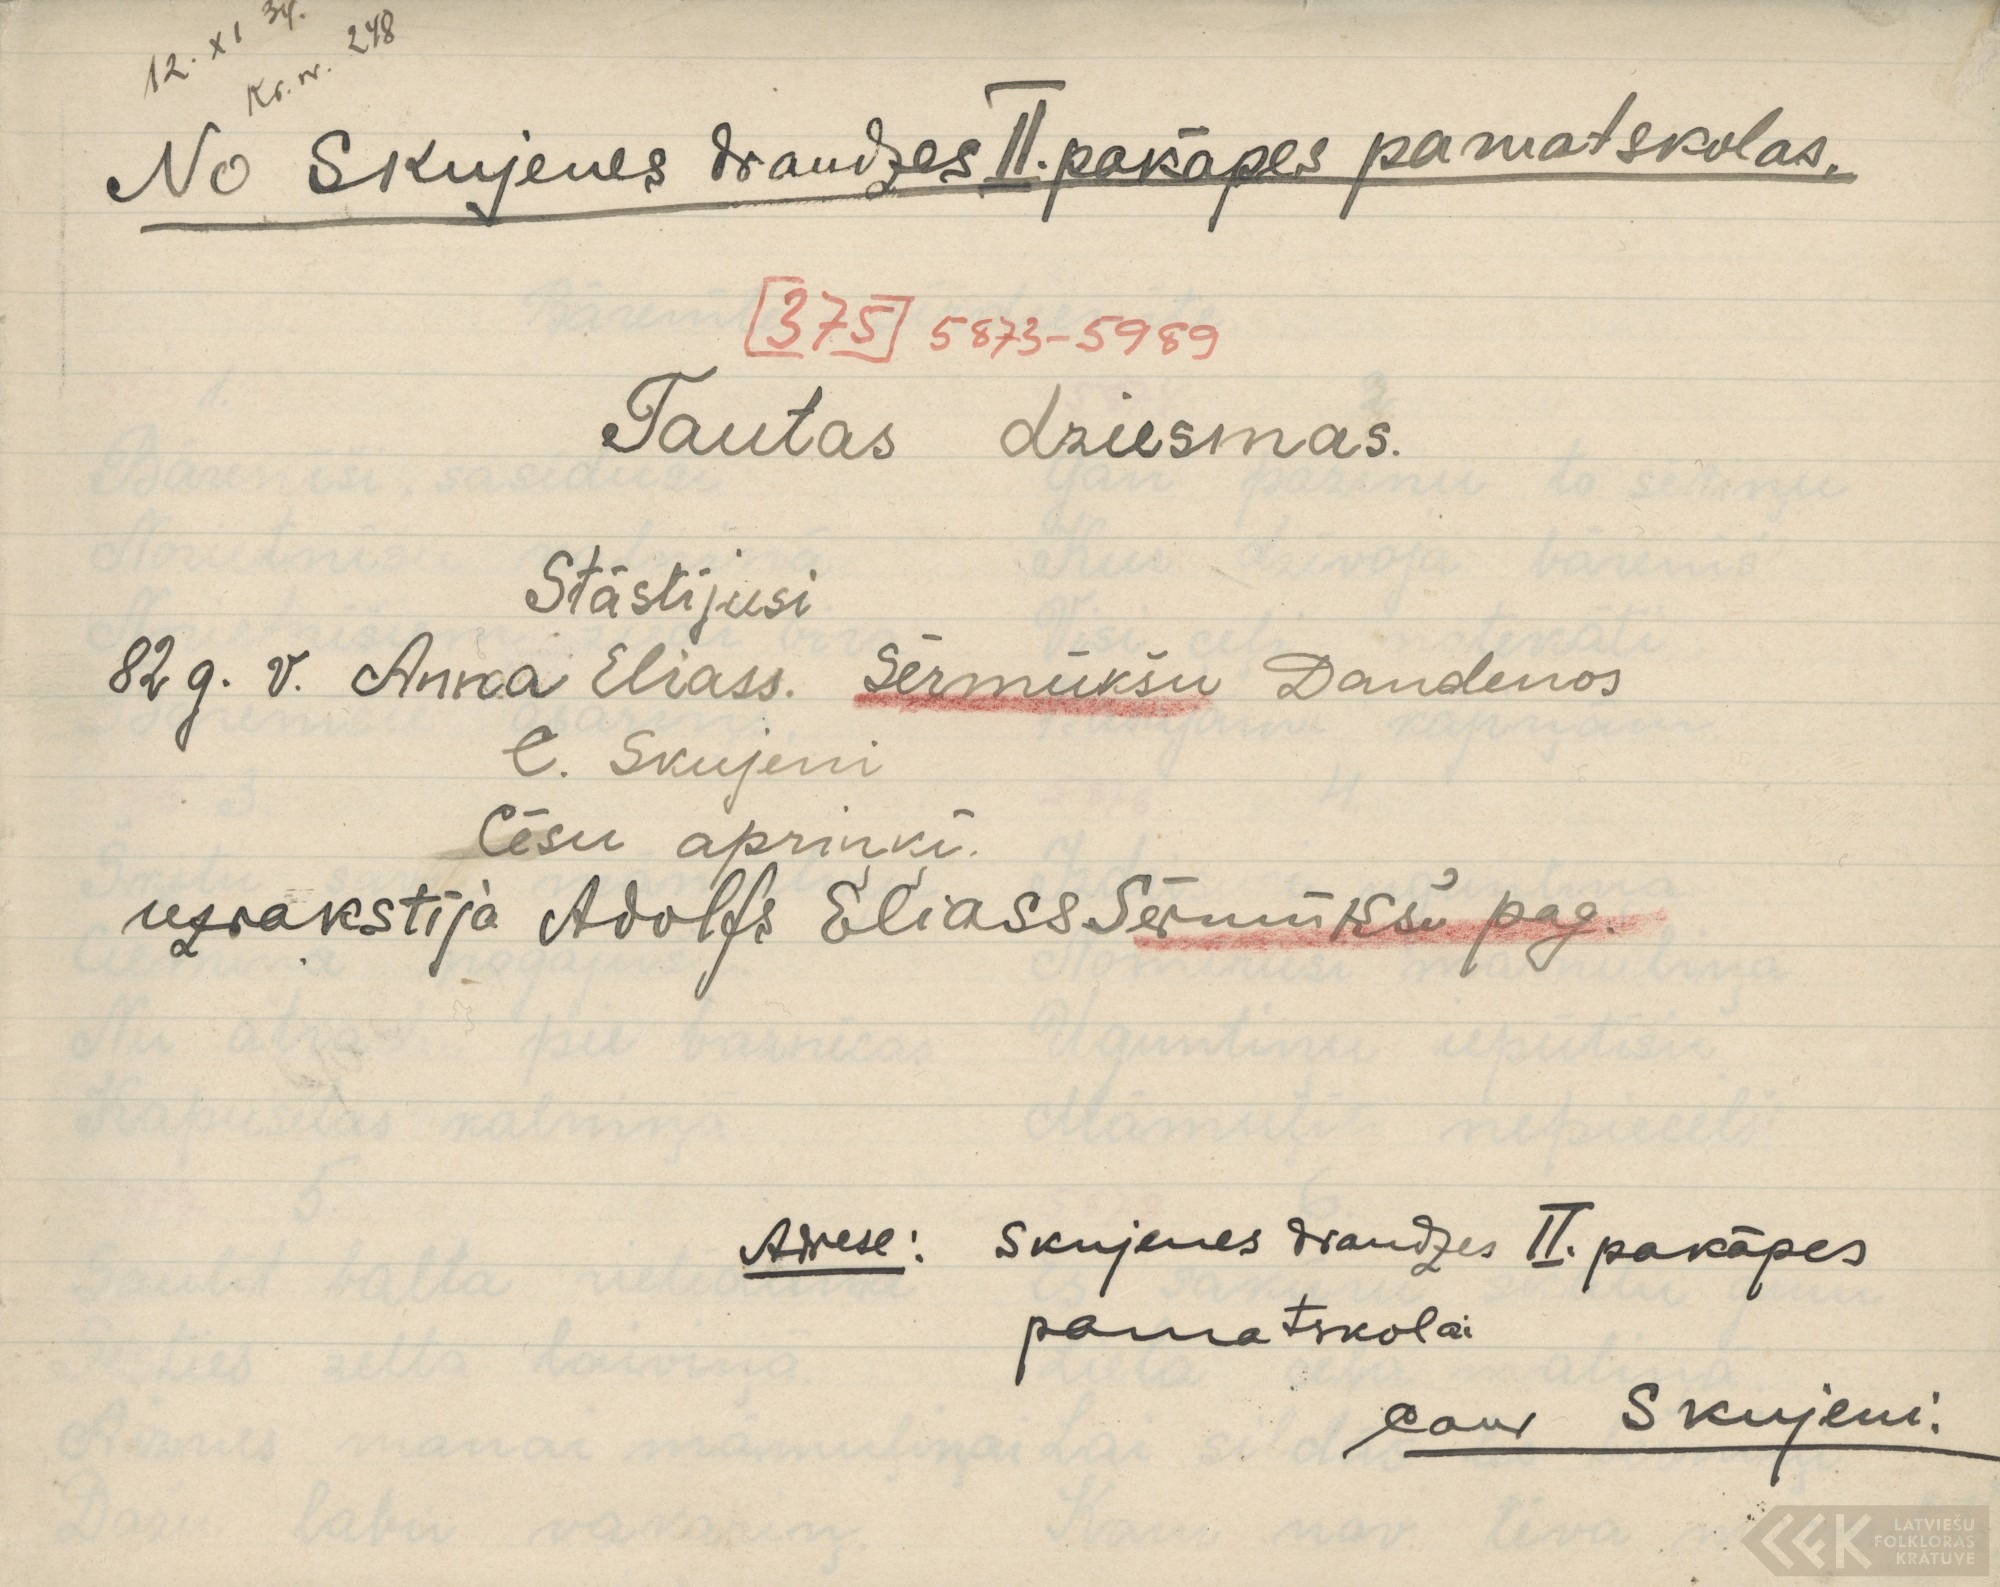 12. XI 34.
Kr. nr. 248
No Skujenes draudzes II. pakāpes pamatskolas.
[375] 5873-5989
Tautas dziesmas.
Stāstījusi
82 g. v. Anna Eliass. Sērmūkšu Dandenos
C. Skujeni
Cēsu apriņķī.
uzrakstījà Adolfs Eliass Sērmūkšu pag.
Adrese: Skujenes draudzes II. pakāpes
pamatskolai
caur Skujeni:
LATVIEŠU
FOLKLORAS
KRĀTUVE